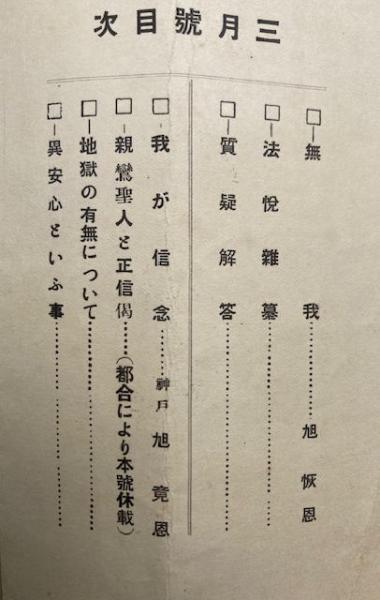 三月號目次
□―無我…………旭恢恩
□―法悅雜纂…………
□―質疑解答…………
□―我が信念………神戸 旭竟恩
□―親鸞聖人と正信偈……(都合により本號休載)
□―地獄の有無について…………
□―異安心といふ事…………